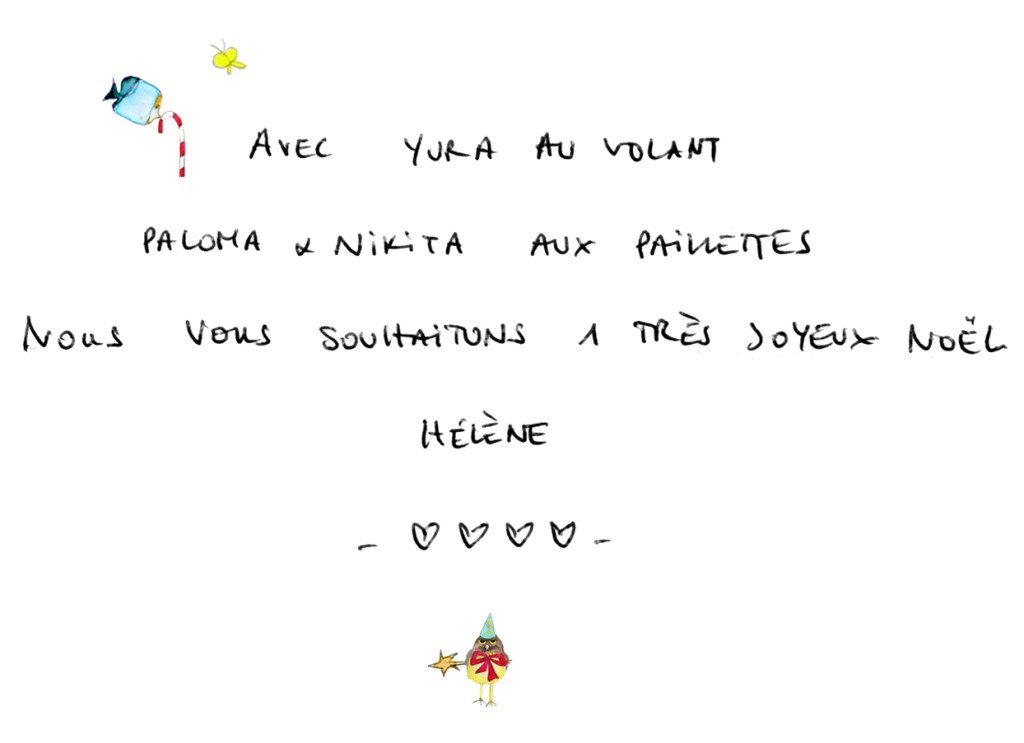 AVEC YURA AU VOLANT
PALOMA & NIKITA AUX PAILLETTES
NOUS VOUS SOUHAITONS 1 TRÈS JOYEUX NOËL
HÉLÈNE
- ♡ ♡ ♡ ♡ -